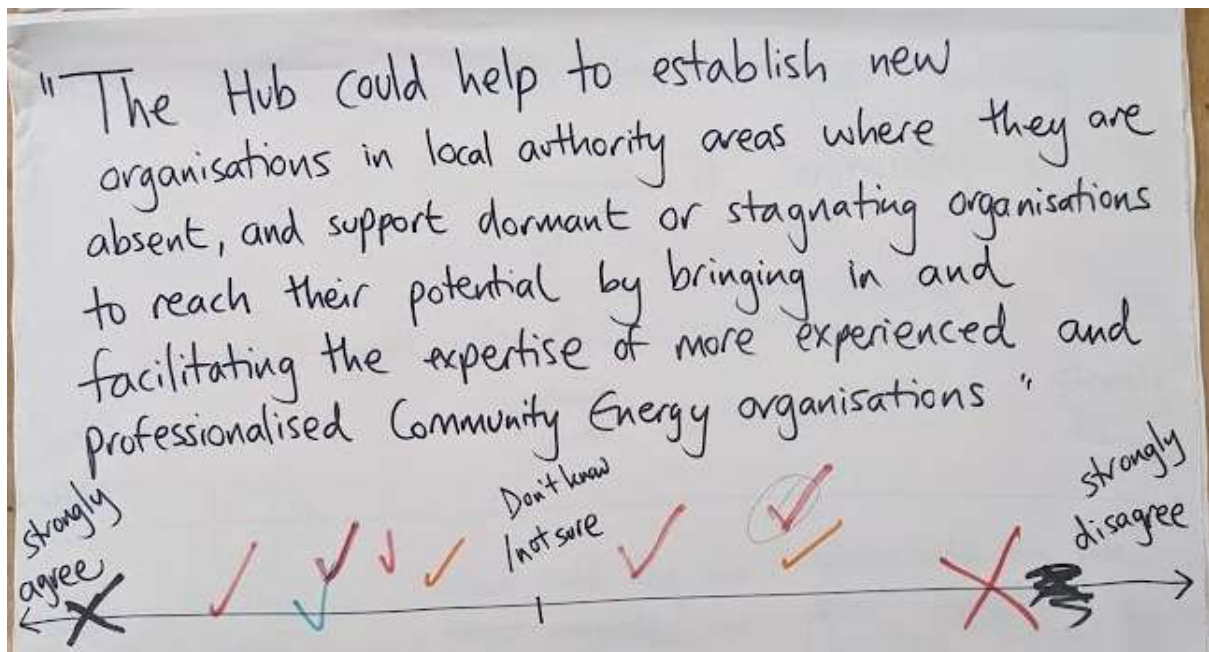 "The Hub could help to establish new
organisations in local authority areas where they are
absent, and support dormant or stagnating organisations
to reach their potential by bringing in and
facilitating the expertise of more experienced and
professionalised Community Energy organisations"
strongly
agree
Don't know
/not sure
strongly
disagree